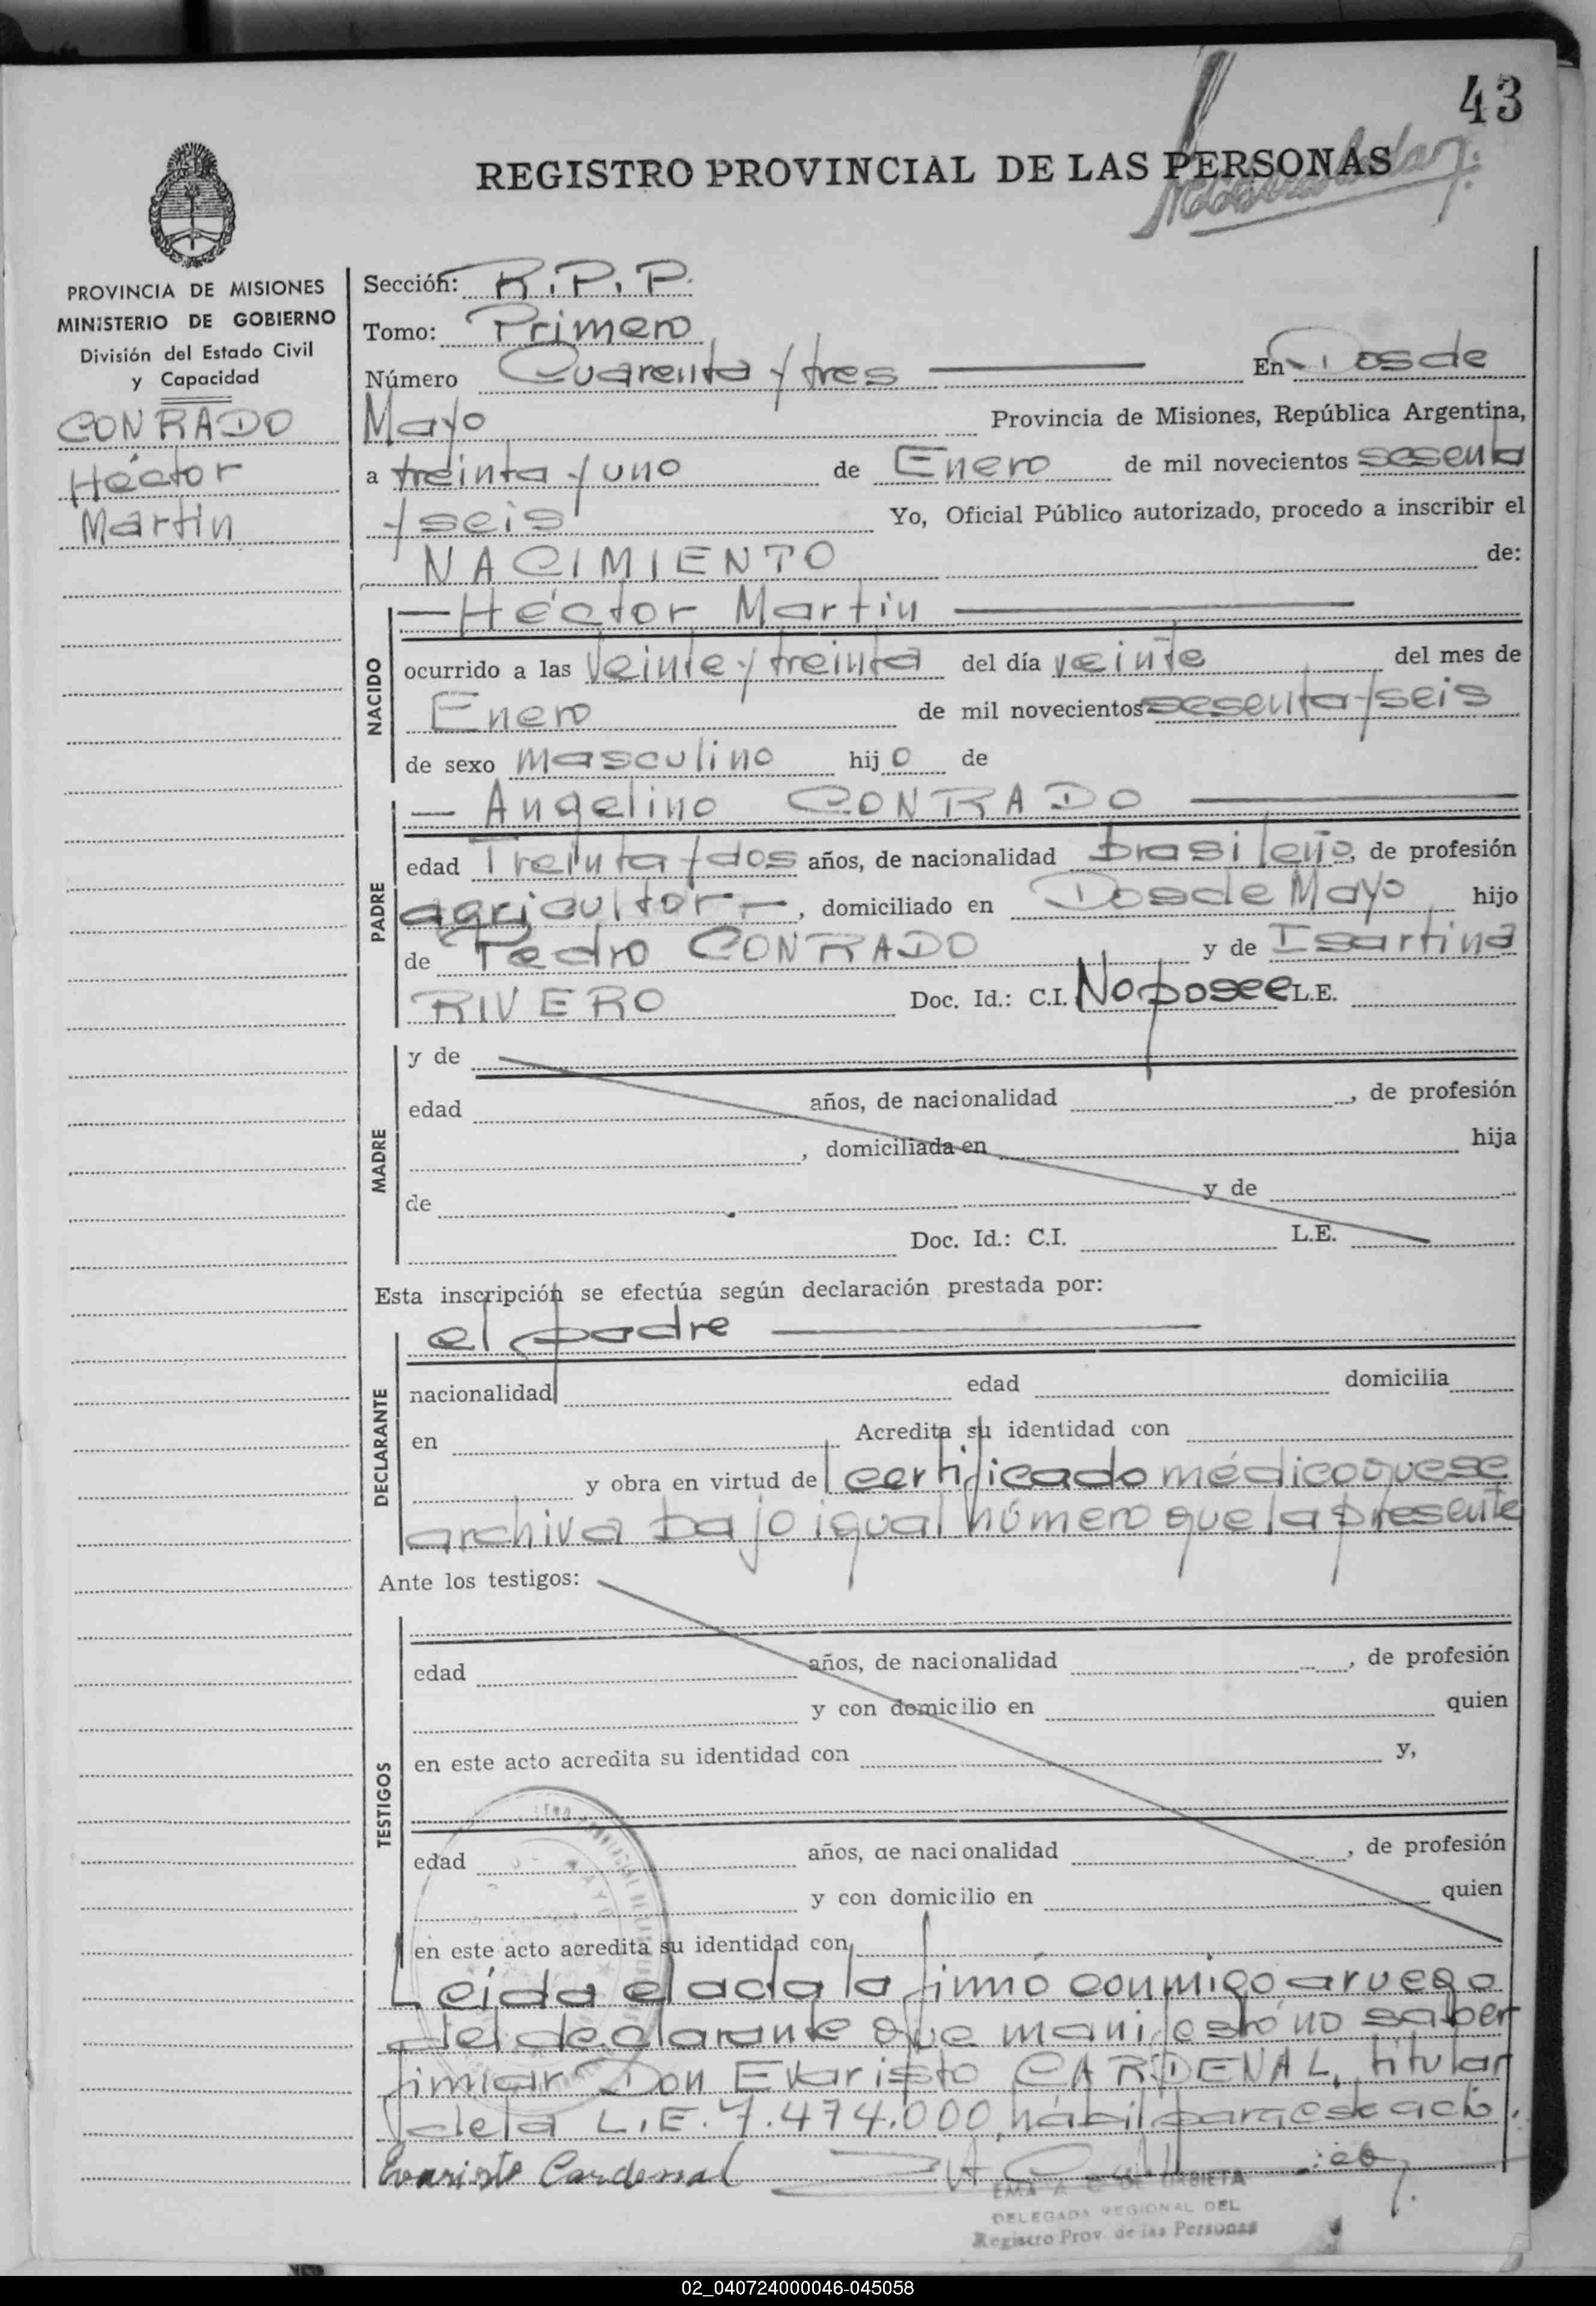 43
REGISTRO PROVINCIAL DE LAS PERSONAS
PROVINCIA DE MISIONES
MINISTERIO DE GOBIERNO
División del Estado Civil
y Capacidad
CONRADO
Héctor
Martin
Sección: R.P.P.
Tomo: Primero
Número Cuarenta y tres En Dos de
Mayo Provincia de Misiones, República Argentina,
a treinta y uno de Enero de mil novecientos sesenta
y seis Yo, Oficial Público autorizado, procedo a inscribir el
NACIMIENTO de:
NACIDO
Héctor Martin
ocurrido a las veinte y treinta del día veinte del mes de
Enero de mil novecientos sesenta y seis
de sexo masculino hijo de
PADRE
Angelino CONRADO
edad Treinta y dos años, de nacionalidad brasileño, de profesión
agricultor, domiciliado en Dos de Mayo hijo
de Pedro CONRADO y de Isartina
RIVERO Doc. Id.: C.I. No posee L.E.
MADRE
y de
edad años, de nacionalidad , de profesión
, domiciliada en hija
de y de
Doc. Id.: C.I. L.E.
Esta inscripción se efectúa según declaración prestada por:
DECLARANTE
el padre
nacionalidad edad domicilia
en Acredita su identidad con
y obra en virtud de certificado médico que se
archiva bajo igual número que la presente
Ante los testigos:
TESTIGOS
edad años, de nacionalidad , de profesión
y con domicilio en quien
en este acto acredita su identidad con y,
edad años, de nacionalidad , de profesión
y con domicilio en quien
en este acto acredita su identidad con
Leída el acta la firmó conmigo a ruego
del declarante que manifestó no saber
firmar Don Evaristo CARDENAL, titular
de la L.E. 7.474.000, hábil para este acto.
Evaristo Cardenal
EMA A C DE URBIETA
DELEGADA REGIONAL DEL
Registro Prov. de las Personas
02_040724000046-045058